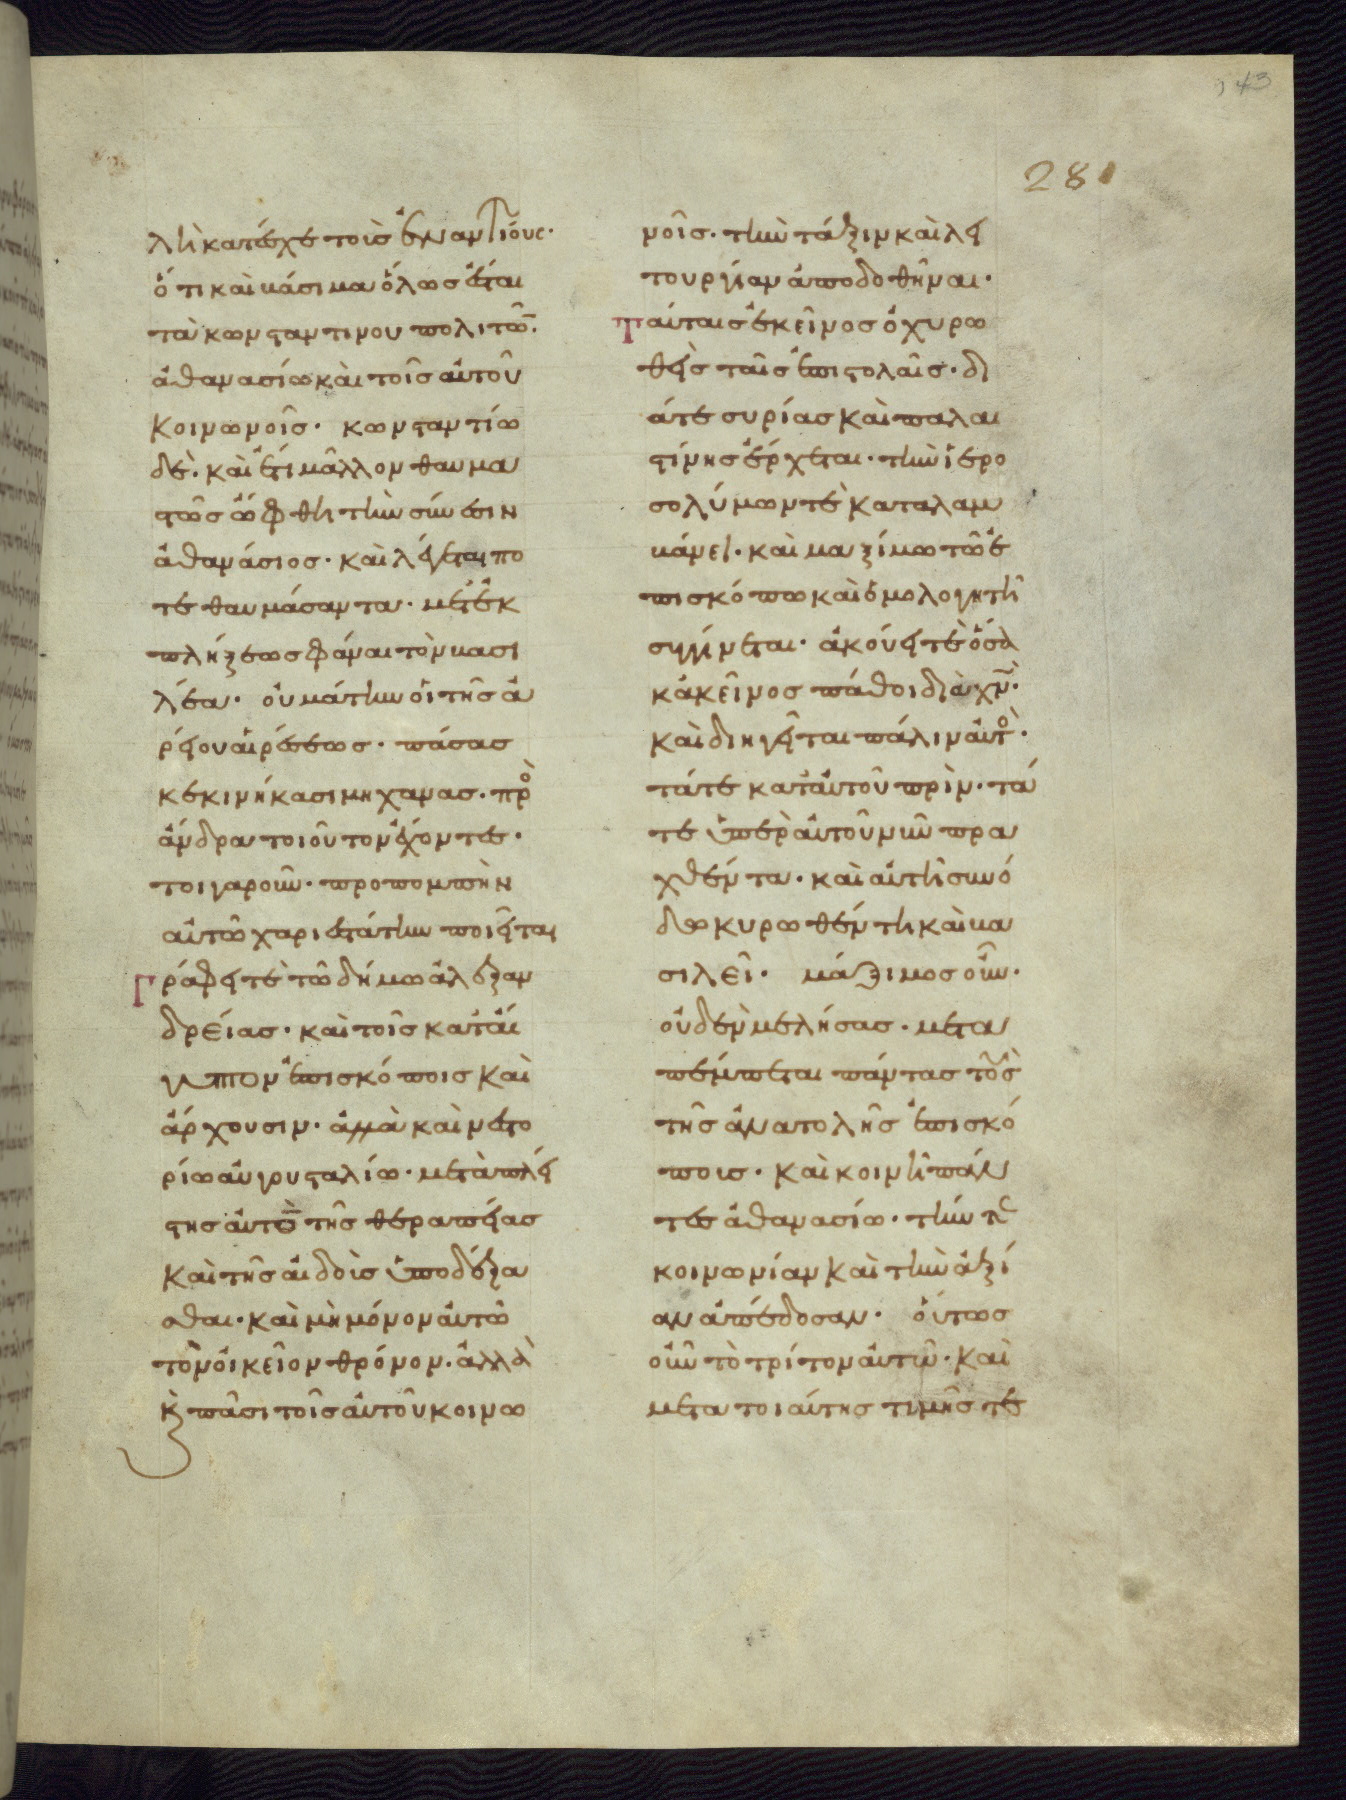 143
281
λὴ κατέσχε τοὺς ἐναντίους·
ὅτι καὶ βάσιμα ὅλως ἐστι
τὰ κωνσταντίνου πολιτῶν·
ἀθανασίω καὶ τοῖς αὐτοῦ
κοινωνοῖς· κωνσταντίω
δὲ· καὶ ἔτι μᾶλλον θαυμα
στῶς ὤφθη τὴν σύνεσιν
ἀθανάσιος· καὶ λέγεται πο
τὲ θαυμάσαντα· μετ' ἐκ
πλήξεως φάναι τὸν βασι
λέα· οὐ μάτην οἱ τῆς ἀ
ρείου αἱρέσεως· πάσας
κεκινήκασι μηχανας· πρὸ
ἄνδρα τοιοῦτον ἔχοντες·
τοιγαροῦν· προπομπὴν
αὐτῶ χαριεστάτην ποιεῖται
Γράφει τὲ τῶ δήμω ἀλεξαν
δρείας· καὶ τοῖς κατ' αἴ
γυπτον ἐπισκόποις καὶ
ἄρχουσιν· ἀλλὰ καὶ νεστο
ρίω αὐγουσταλίω· μετὰ πλεί
στης αὐτὸν τῆς θεραπείας
καὶ τῆς αἰδοῖς ὑποδέξα
σθαι· καὶ μὴ μόνον αὐτῶ
τὸν οἰκεῖον θρόνον· ἀλλὰ
κ πᾶσι τοῖς αὐτοῦ κοινω
νοῖς· τὴν τάξιν καὶ λει
τουργίαν ἀποδοθῆναι·
Ταύταις ἐκεῖνος ὀχυρω
θεὶς ταῖς ἐπιστολαῖς· δι
άτε συρίας καὶ παλαι
στίνης ἔρχεται· τὴν ἱερο
σολύμων τὲ καταλαμ
βάνει· καὶ μαξίμω τῶ ἐ
πισκόπω καὶ ὁμολογητῆ
συγγίνεται· ἀκούει τὲ ὅσα
κἀκεῖνος πάθοι διὰ χν·
καὶ διηγεῖται πάλιν αὐτὸ·
τάτε κατ' αὐτοῦ πρὶν· τά
τε ὑπὲρ αὐτοῦ νῦν πρα
χθέντα· καὶ αὐτῆ συνό
δω κυρωθέντη καὶ βα
σιλεῖ· μάξιμος οὖν·
οὐδὲν μελήσας· μετα
πέμπεται πάντας τοὺς
τῆς ἀνατολῆς ἐπισκό
ποις· καὶ κοινῆ πάν
τες ἀθανασίω· τήν τε
κοινωνίαν καὶ τὴν ἀξί
αν ἀπέδοσαν· οὕτως
οὖν τὸ τρίτον αὐτῶν· καὶ
μετα τοιαύτης τιμῆς τὲ